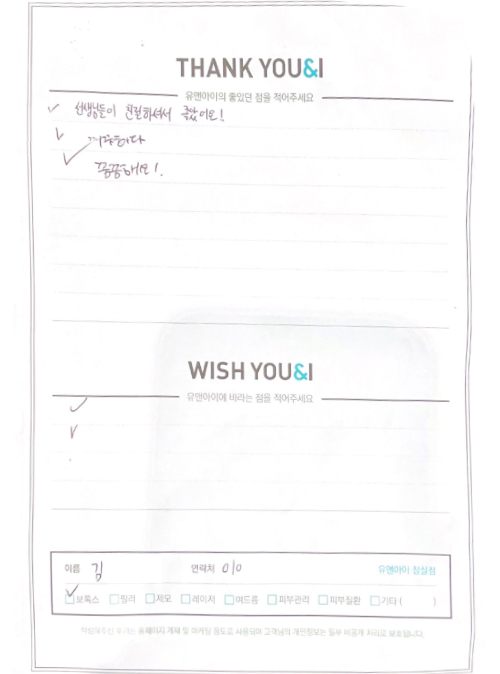 THANK YOU&I
유앤아이의 좋았던 점을 적어주세요
선생님들이 친절하셔서 좋았어요!
꼼꼼해요!
WISH YOU&I
유앤아이에 바라는 점을 적어주세요
이름 김 연락처 010 유앤아이 잠실점
보톡스 필러 제모 레이저 여드름 피부관리 피부질환 기타 ( )
작성해주신 후기는 홈페이지 게재 및 마케팅 용도로 사용되며 고객님의 개인정보는 일부 비공개 처리로 보호됩니다.